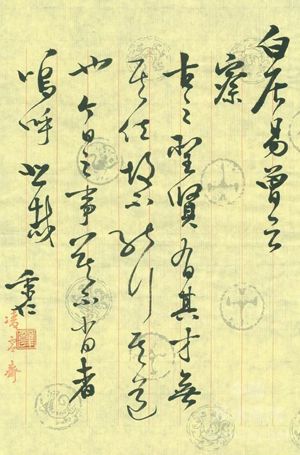 白居易曾云
察
古之聖賢有其才無
其位故不能行其道
也今日之事
者
嗚呼悲哉